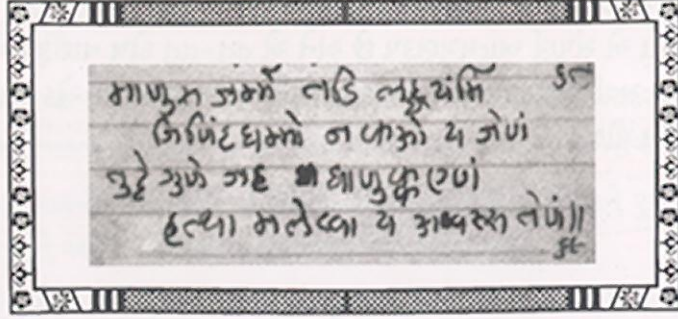 माणुस जम्मे तडि लद्धयंमि
जिणिंदधम्मो न कओ य जेणं
तुट्टे गुणे जह धाणुक्कएणं
हत्था मलेव्वा य अवस्स तेणं॥